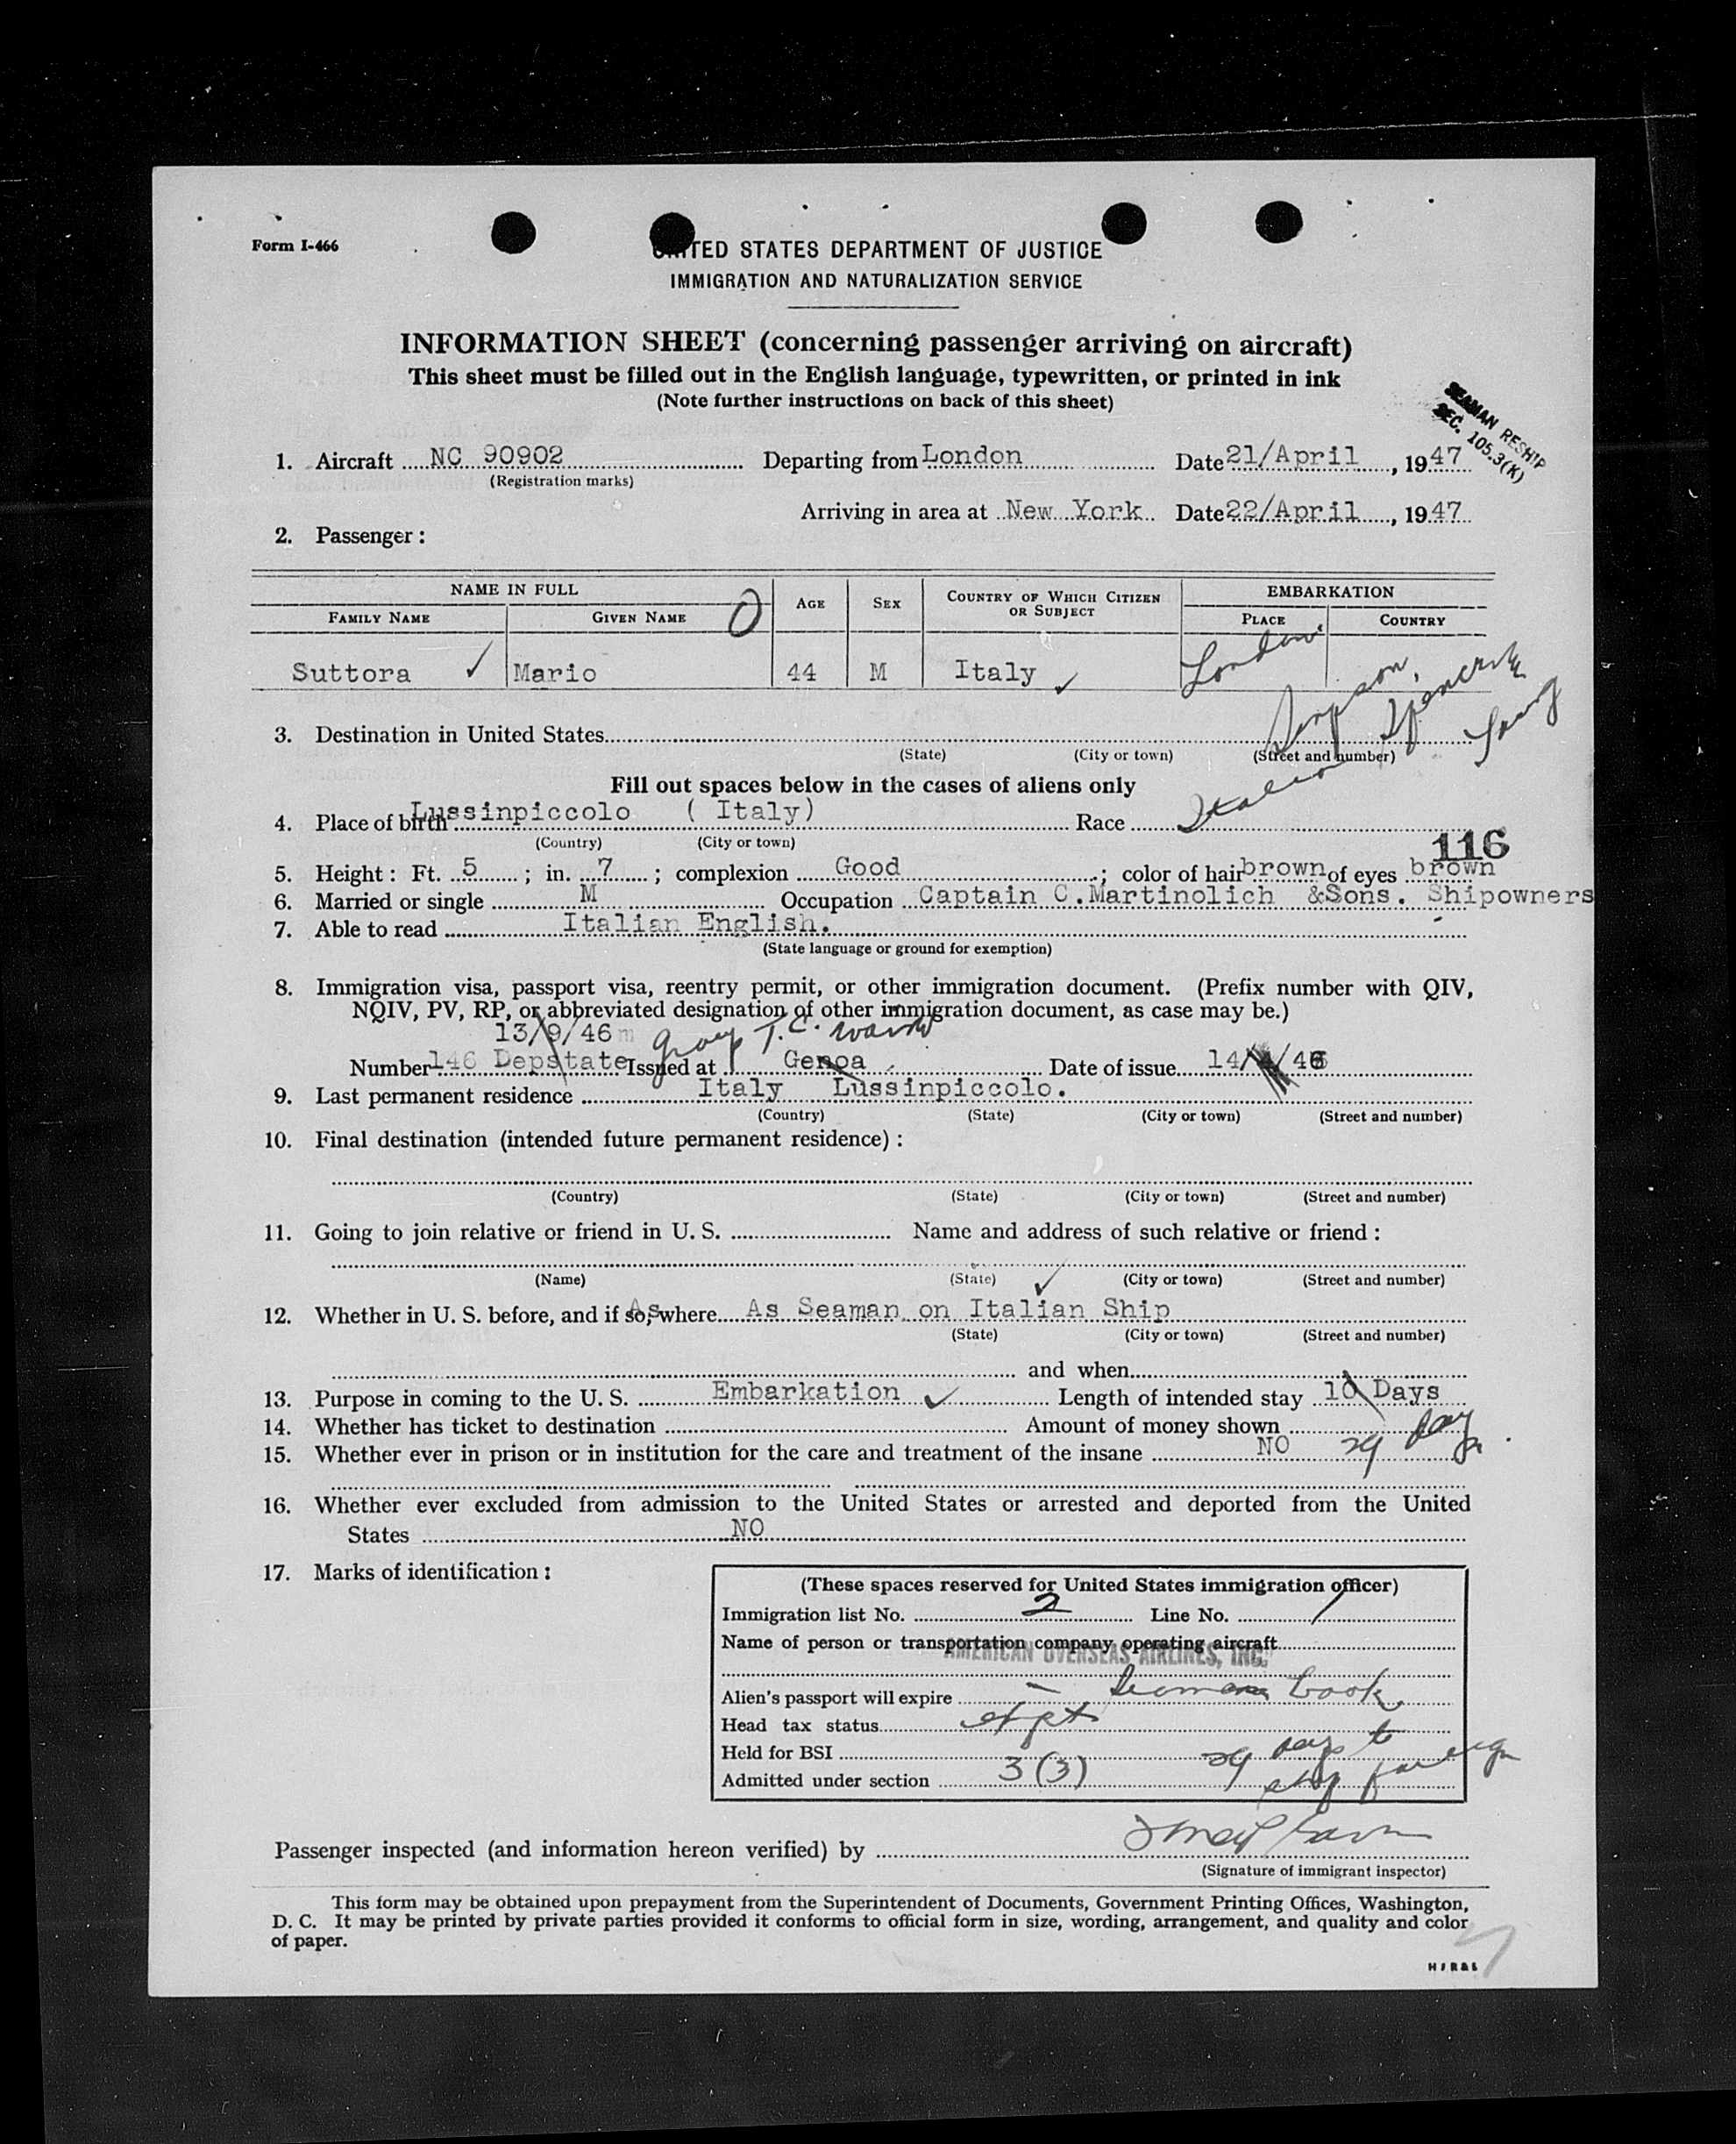 Form I-466
UNITED STATES DEPARTMENT OF JUSTICE
IMMIGRATION AND NATURALIZATION SERVICE
INFORMATION SHEET (concerning passenger arriving on aircraft)
This sheet must be filled out in the English language, typewritten, or printed in ink
(Note further instructions on back of this sheet)
SEAMAN RESHIP
SEC. 105.3(K)
1. Aircraft NC 90902 Departing from London Date 21/April, 1947
(Registration marks)
Arriving in area at New York Date 22/April, 1947
2. Passenger:
NAME IN FULL AGE SEX COUNTRY OF WHICH CITIZEN OR SUBJECT EMBARKATION
FAMILY NAME GIVEN NAME 0 PLACE COUNTRY
Suttora ✓ Mario 44 M Italy ✓ London
Simpson, Spence & Young
3. Destination in United States
(State) (City or town) (Street and number)
Fill out spaces below in the cases of aliens only
4. Place of birth Lussinpiccolo ( Italy) Race Italian
(Country) (City or town)
116
5. Height: Ft. 5; in. 7; complexion Good; color of hair brown of eyes brown
6. Married or single M Occupation Captain C.Martinolich &Sons. Shipowners
7. Able to read Italian English.
(State language or ground for exemption)
8. Immigration visa, passport visa, reentry permit, or other immigration document. (Prefix number with QIV,
NQIV, PV, RP, or abbreviated designation of other immigration document, as case may be.)
13/9/46 T.C.
Number 146 Depstate Issued at Genoa Date of issue 14/ /46
9. Last permanent residence Italy Lussinpiccolo.
(Country) (State) (City or town) (Street and number)
10. Final destination (intended future permanent residence):
(Country) (State) (City or town) (Street and number)
11. Going to join relative or friend in U. S. Name and address of such relative or friend:
(Name) (State) ✓ (City or town) (Street and number)
12. Whether in U. S. before, and if so, where As As Seaman on Italian Ship
(State) (City or town) (Street and number)
and when
13. Purpose in coming to the U. S. Embarkation ✓ Length of intended stay 10 Days
14. Whether has ticket to destination Amount of money shown
15. Whether ever in prison or in institution for the care and treatment of the insane NO 29 days
16. Whether ever excluded from admission to the United States or arrested and deported from the United
States NO
17. Marks of identification:
(These spaces reserved for United States immigration officer)
Immigration list No. 2 Line No. 1
Name of person or transportation company operating aircraft
AMERICAN OVERSEAS AIRLINES, INC.
Alien's passport will expire — Seamans book
Head tax status expt
Held for BSI 29 days to
Admitted under section 3(3) ship foreign
Passenger inspected (and information hereon verified) by
(Signature of immigrant inspector)
This form may be obtained upon prepayment from the Superintendent of Documents, Government Printing Offices, Washington,
D. C. It may be printed by private parties provided it conforms to official form in size, wording, arrangement, and quality and color
of paper.